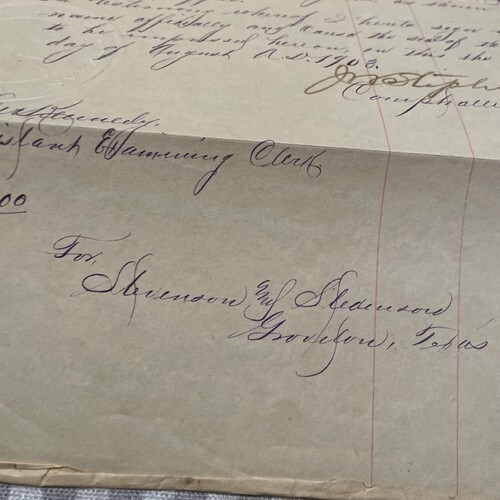 In testimony whereof I hereto sign my
name officially and cause the seal of
to be impressed hereon, on this the
day of August A.D. 1903.
Jno Steph
Comptroller
Kennedy,
istant Examining Clerk
00
For
Stevenson and Stevenson
Texas